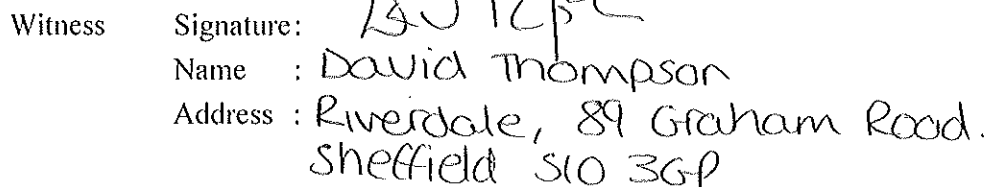 Witness Signature:
Name : David Thompson
Address : Riverdale, 89 Graham Road.
Sheffield S10 3GP